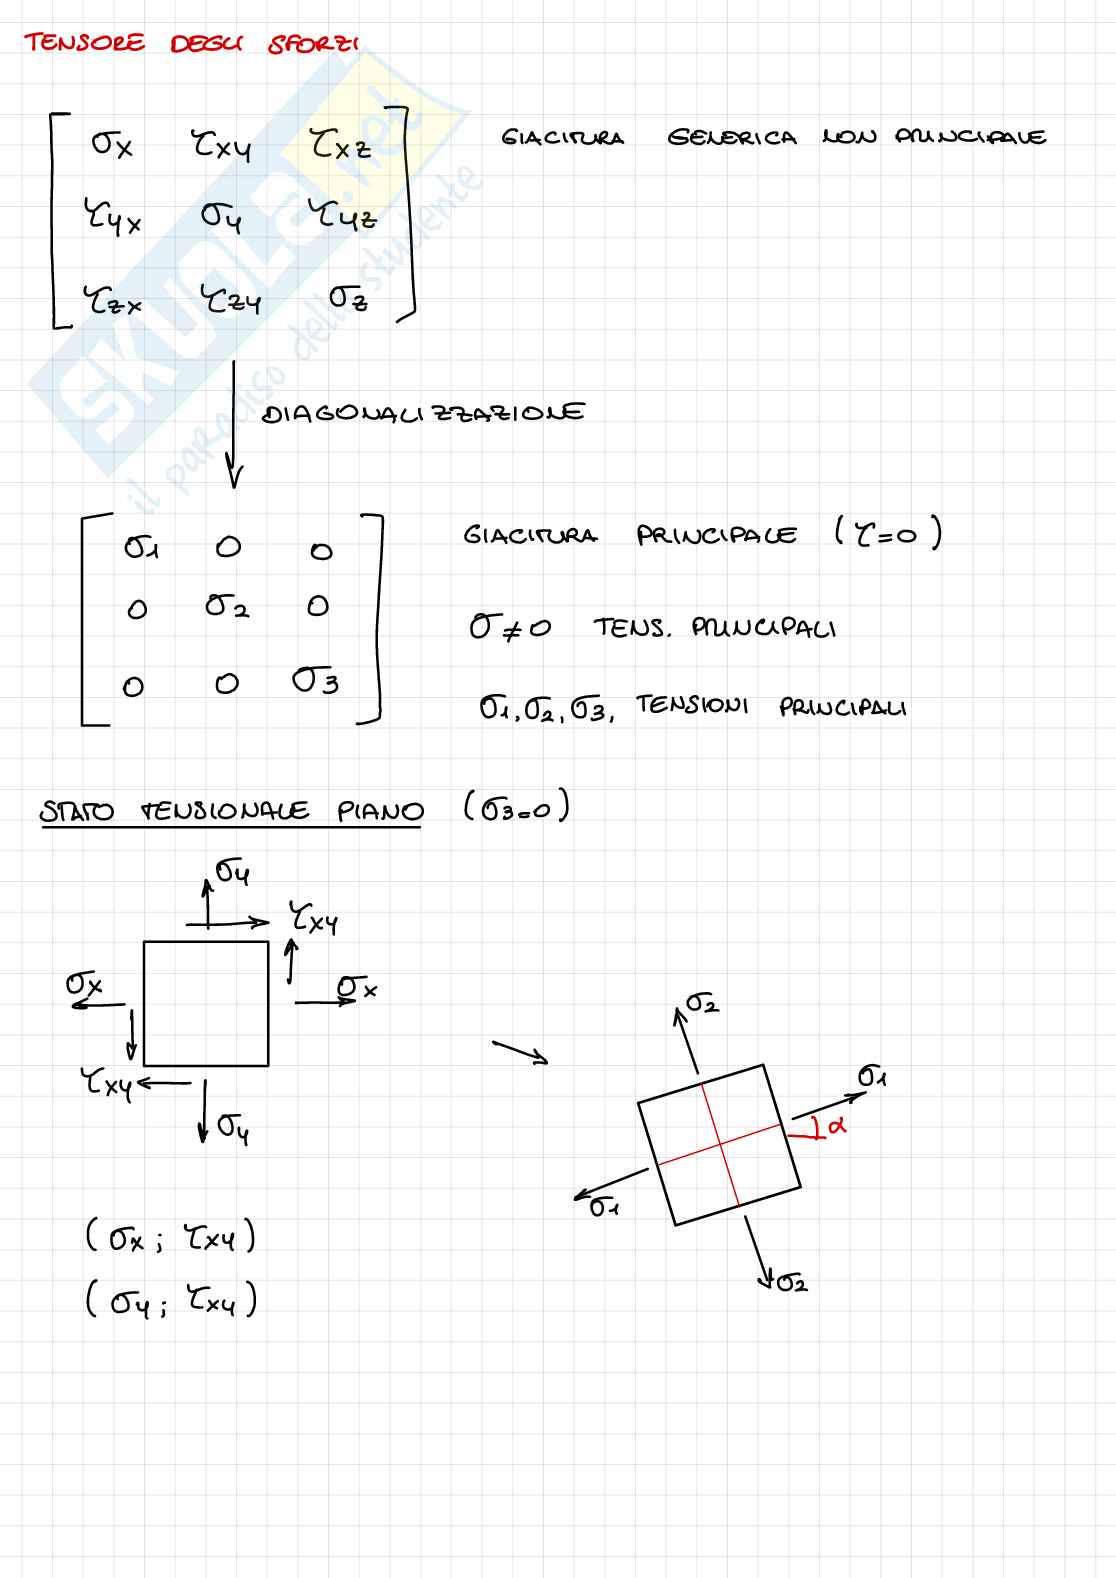 TENSORE DEGLI SFORZI
σx τxy τxz
GIACITURA GENERICA NON PRINCIPALE
τyx σy τyz
τzx τzy σz
SKUOLA.net
il paradiso dello studente
DIAGONALIZZAZIONE
σ1 0 0
GIACITURA PRINCIPALE (τ=0)
0 σ2 0
σ≠0 TENS. PRINCIPALI
0 0 σ3
σ1, σ2, σ3, TENSIONI PRINCIPALI
STATO TENSIONALE PIANO (σ3=0)
σy
τxy
σx
σx
τxy
σy
σ2
σ1
α
σ1
σ2
(σx; τxy)
(σy; τxy)